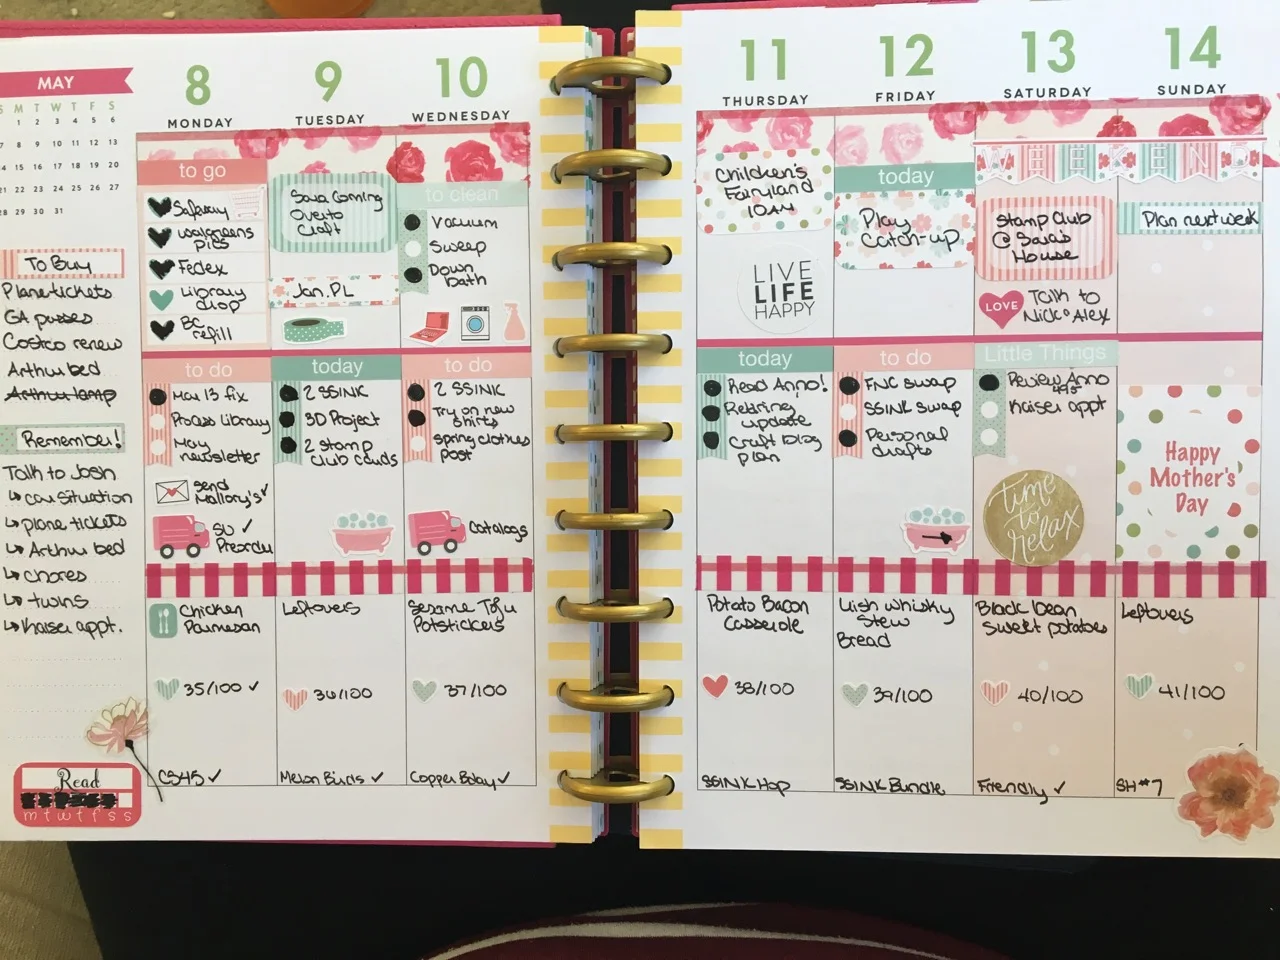 MAY
S M T W T F S
1 2 3 4 5 6
7 8 9 10 11 12 13
14 15 16 17 18 19 20
21 22 23 24 25 26 27
28 29 30 31
To Buy
Plane tickets
GA passes
Costco renew
Arthur bed
Arthur lamp
Remember!
Talk to Josh
↳ car situation
↳ plane tickets
↳ Arthur bed
↳ chores
↳ twins
↳ Kaiser appt.
Read
m t w t f s s
8
MONDAY
to go
Safeway
Walgreens
pics
Fedex
Library
drop
BC
refill
to do
Mar 13 fix
Process Library
May
newsletter
send
Mallory's ✓
SU ✓
Preorder
Chicken
Parmesan
35/100 ✓
CS45 ✓
9
TUESDAY
Sara Coming
Over to
Craft
Jan. PL
today
2 SSINK
3D Project
2 stamp
club cards
Leftovers
36/100
Melon Builds ✓
10
WEDNESDAY
to clean
Vacuum
Sweep
Down
bath
to do
2 SSINK
Try on new
shirts
Spring clothes
post
Catalogs
Sesame Tofu
Potstickers
37/100
Copper Bday ✓
11
THURSDAY
Children's
Fairyland
10AM
LIVE
LIFE
HAPPY
today
Read Anno!
Retiring
update
Craft blog
plan
Potato Bacon
Casserole
38/100
SSINK Hop
12
FRIDAY
today
Play
Catch-up
to do
FNC swap
SSINK swap
Personal
drafts
Irish whisky
Stew
Bread
39/100
SSINK Bundle
13
SATURDAY
WEEKEND
Stamp Club
@ Sara's
House
LOVE
Talk to
Nick & Alex
Little Things
Review Anno
Kaiser appt
time
to
relax
Black bean
Sweet potatoes
40/100
Friendly ✓
14
SUNDAY
Plan next week
Happy
Mother's
Day
Leftovers
41/100
SH #7